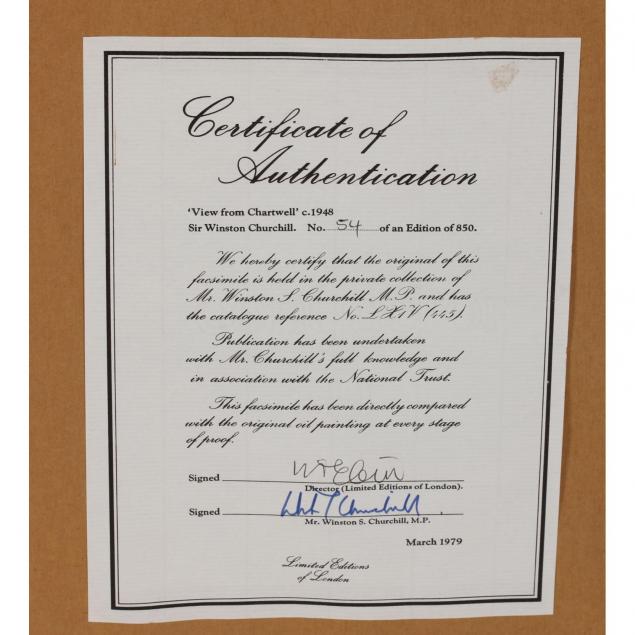 Certificate of
Authentication
'View from Chartwell' c.1948
Sir Winston Churchill. No. 54 of an Edition of 850.
We hereby certify that the original of this
facsimile is held in the private collection of
Mr. Winston S. Churchill M.P. and has
the catalogue reference No. LXIV (445).
Publication has been undertaken
with Mr. Churchill's full knowledge and
in association with the National Trust.
This facsimile has been directly compared
with the original oil painting at every stage
of proof.
Signed
Director (Limited Editions of London).
Signed Churchill
Mr. Winston S. Churchill, M.P.
March 1979
Limited Editions
of London